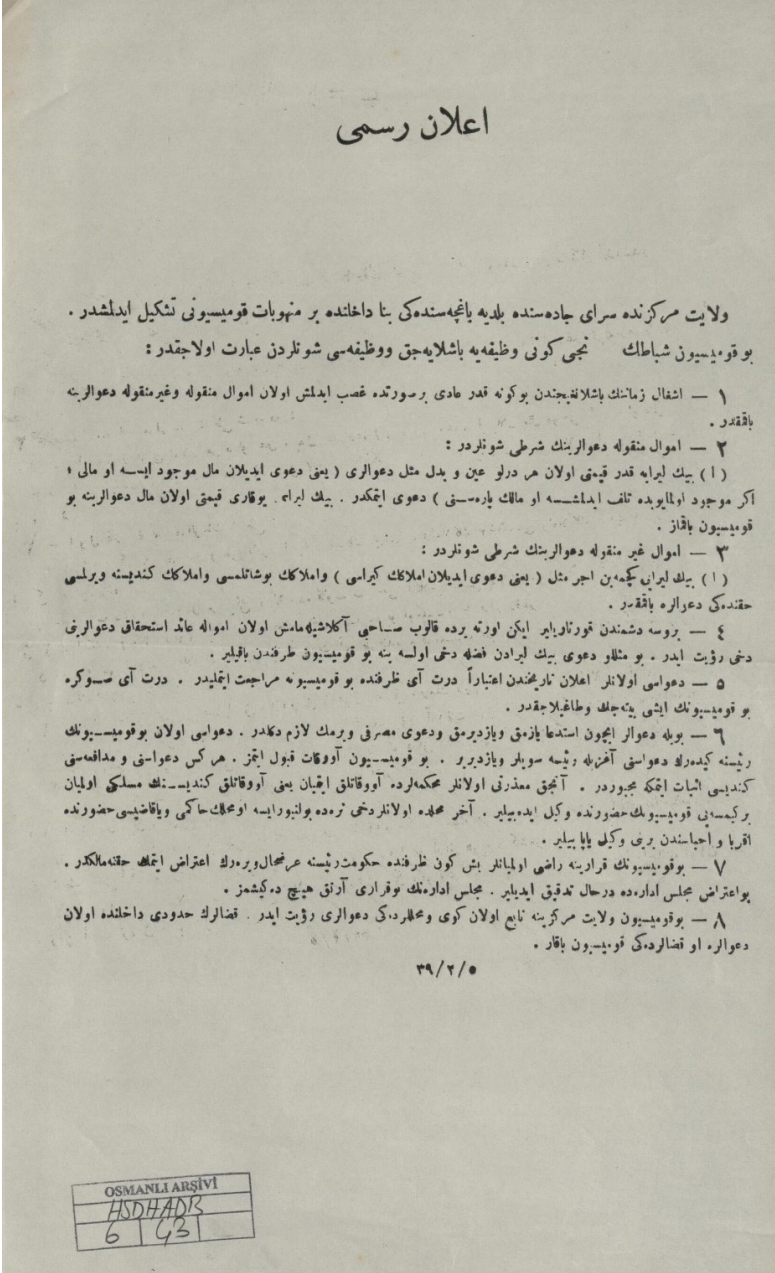 اعلان رسمی
ولایت مركزنده سرای جاده‌سنده بلدیه باغچه‌سنده‌كی بنا داخلنده بر منهوبات قومیسیونی تشكیل ایدلمشدر .
بو قومیسیون شباطك نجی كونی وظیفه‌یه باشلایه‌جق ووظیفه‌سی شونلردن عبارت اولاجقدر :
١ — اشغال زماننك باشلانغیجندن بوكونه قدر عادی برصورتده غصب ایدلمش اولان اموال منقوله وغیرمنقوله دعوالرینه
باقمقدر .
٢ — اموال منقوله دعوالرینك شرطی شونلردر :
( ١ ) بیك لیرایه قدر قیمتی اولان هر درلو عین و بدل مثل دعوالری ( یعنی دعوی ایدیلان مال موجود ایسه او مالی ؛
اكر موجود اولمایوبده تلف ایدلمشسه او مالك پاره‌سنی ) دعوی ایتمكدر . بیك لیرادن یوقاری قیمتی اولان مال دعوالرینه بو
قومیسیون باقماز .
٣ — اموال غیر منقوله دعوالرینك شرطی شونلردر :
( ١ ) بیك لیرایی كچمه‌ین اجر مثل ( یعنی دعوی ایدیلان املاكك كیراسی ) واملاكك بوشاتلمسی واملاكك كندیسنه ویرلمسی
حقنده‌كی دعوالره باقمقدر .
٤ — بروسه دشمندن قورتاریلیر ایكن اورته یرده قالوب صاحبی آكلاشیله‌مامش اولان امواله عائد استحقاق دعوالرینی
دخی رؤیت ایدر . بو مثللو دعوی بیك لیرادن فضله دخی اولسه ینه بو قومیسیون طرفندن باقیلیر .
٥ — دعواسی اولانلر اعلان تاریخندن اعتباراً درت آی ظرفنده بو قومیسیونه مراجعت ایتملیدر . درت آی صوكره
بو قومیسیونك ایشی بیته‌جك وطاغیلاجقدر .
٦ — بویله دعوالر ایچون استدعا یازمق ویازدیرمق ودعوی مصرفی ویرمك لازم دكلدر . دعواسی اولان بوقومیسیونك
رئیسنه كیده‌رك دعواسنی آغزیله رئیسه سویلر ویازدیریر . بو قومیسیون آووقات قبول ایتمز . هر كس دعواسنی و مدافعه‌سنی
كندیسی اثبات ایتمكه مجبوردر . آنجق معذرتی اولانلر محكمه‌لرده آووقاتلق ایتمیان یعنی آووقاتلق كندیسنك مسلكی اولمیان
بركیمسه‌یی قومیسیونك حضورنده وكیل ایده‌بیلیر . آخر محلده اولانلردخی نره‌ده بولنیورایسه اومحلك حاكمی ویاقاضیسی حضورنده
اقربا و احباسندن برینی وكیل یاپا بیلیر .
٧ — بوقومیسیونك قرارینه راضی اولمیانلر بش كون ظرفنده حكومت رئیسنه عرضحال ویره‌رك اعتراض ایتمك حقنه‌مالكدر .
بواعتراض مجلس اداره‌ده درحال تدقیق ایدیلیر . مجلس اداره‌نك بوقراری آرتق هیچ ده‌كیشمز .
٨ — بوقومیسیون ولایت مركزینه تابع اولان كوی ومحللرده‌كی دعوالری رؤیت ایدر . قضالرك حدودی داخلنده اولان
دعوالره او قضالرده‌كی قومیسیون باقار .
٣٩/٢/٥
OSMANLI ARŞİVİ
HSDHADB
6 43